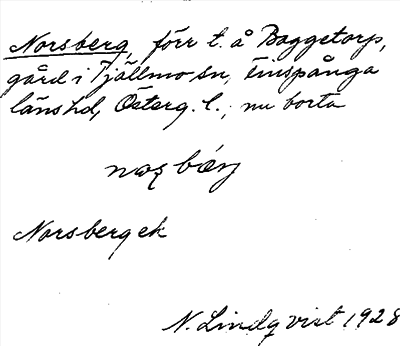 Norsberg, förr t. å Baggetorp,
gård i Tjällmo sn, Finspånga
läns hd, Österg. l.; nu borta
Norsberg ek
N. Lindqvist 1928